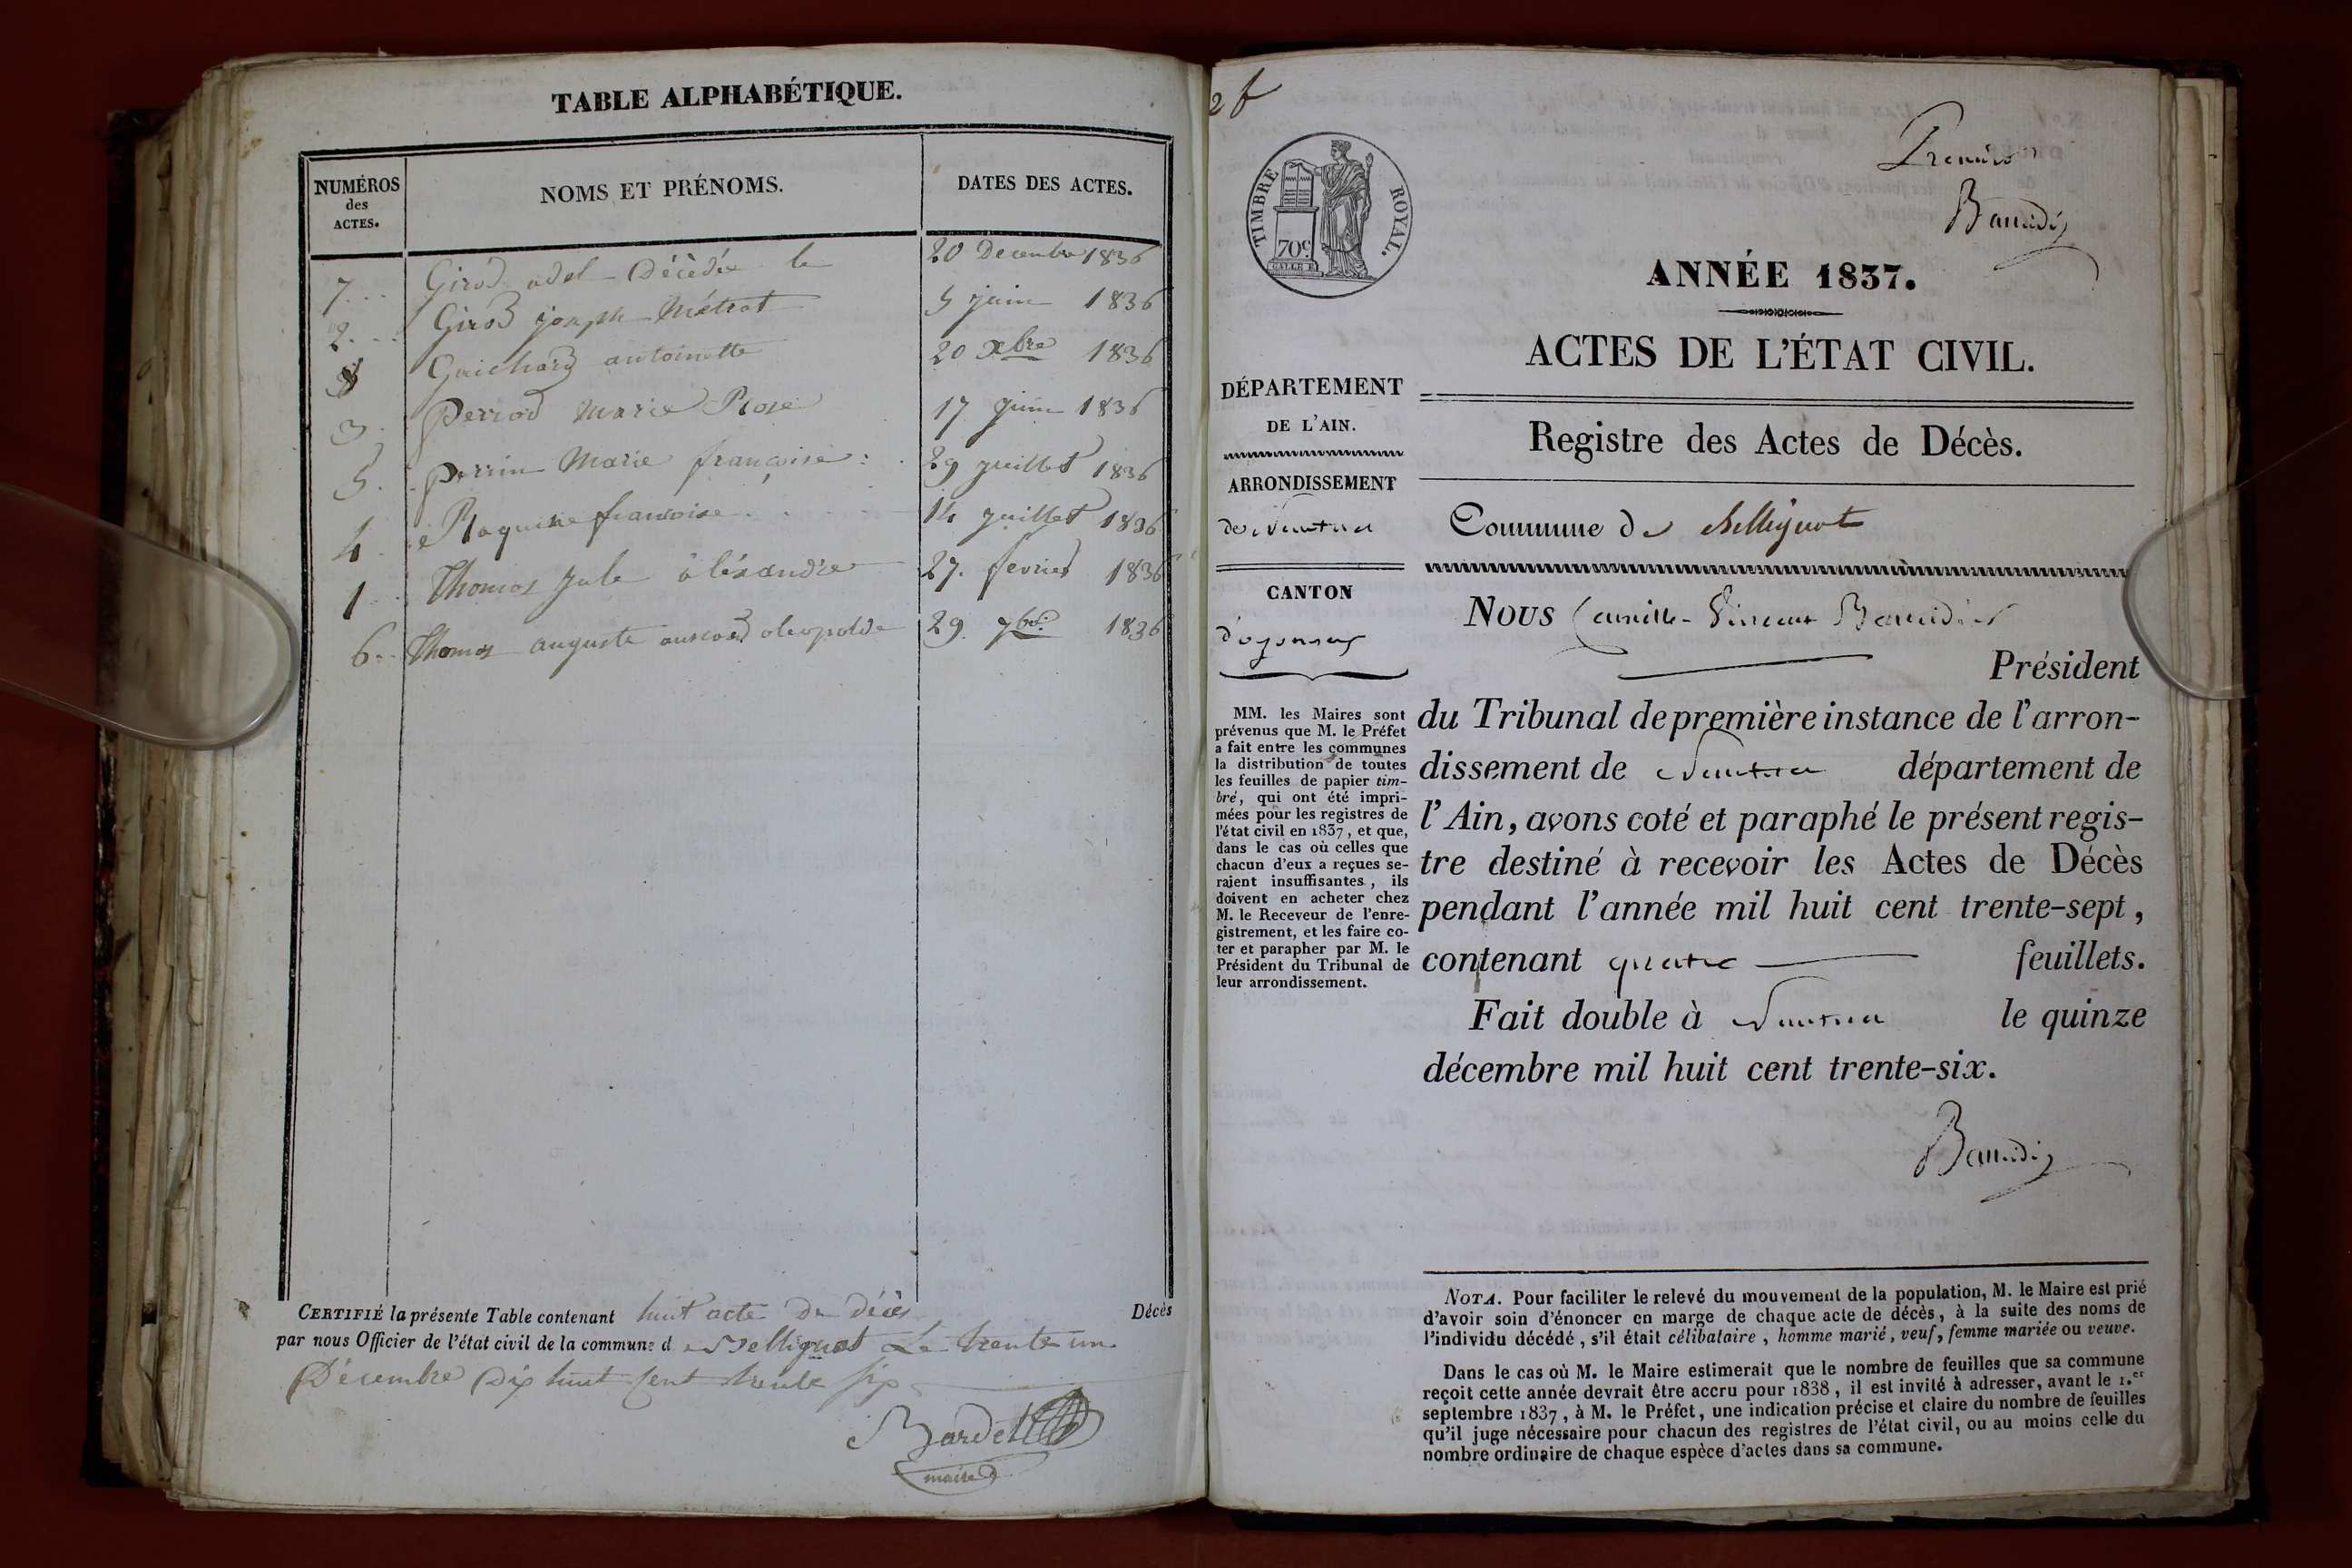 TABLE ALPHABÉTIQUE.
NUMÉROS
des
ACTES.
NOMS ET PRÉNOMS.
DATES DES ACTES.
7... Girod adel Décèdée le 20 Decembre 1836
2... Girod joseph Métrat 5 juin 1836
8 Guichard antoinette 20 Xbre 1836
3. Perrod Marie Rose 17 juin 1836
5. perrin Marie françoise 29 juillet 1836
4. françoise 14 juillet 1836
1.. Thomas Jule aléxandre 27. fevrier 1836
6.. Thomas auguste oleopolde 29. 7bre 1836
CERTIFIÉ la présente Table contenant huit acte de décès Décès
par nous Officier de l'état civil de la commune d e Belligniat Le trente un
Décembre Dix huit Cent trente Six
Bardet
maire
2 f
Premier
Baudin
TIMBRE ROYAL.
70c
ANNÉE 1837.
ACTES DE L'ÉTAT CIVIL.
DÉPARTEMENT
DE L'AIN.
ARRONDISSEMENT
de Nantua
CANTON
d'oyonnax
MM. les Maires sont
prévenus que M. le Préfet
a fait entre les communes
la distribution de toutes
les feuilles de papier tim-
bré, qui ont été impri-
mées pour les registres de
l'état civil en 1837, et que,
dans le cas où celles que
chacun d'eux a reçues se-
raient insuffisantes, ils
doivent en acheter chez
M. le Receveur de l'enre-
gistrement, et les faire co-
ter et parapher par M. le
Président du Tribunal de
leur arrondissement.
Registre des Actes de Décès.
Commune de Belligniat
NOUS Camille-Vincent
Président
du Tribunal de première instance de l'arron-
dissement de Nantua département de
l'Ain, avons coté et paraphé le présent regis-
tre destiné à recevoir les Actes de Décès
pendant l'année mil huit cent trente-sept,
contenant quatre feuillets.
Fait double à Nantua le quinze
décembre mil huit cent trente-six.
NOTA. Pour faciliter le relevé du mouvement de la population, M. le Maire est prié
d'avoir soin d'énoncer en marge de chaque acte de décès, à la suite des noms de
l'individu décédé, s'il était célibataire, homme marié, veuf, femme mariée ou veuve.
Dans le cas où M. le Maire estimerait que le nombre de feuilles que sa commune
reçoit cette année devrait être accru pour 1838, il est invité à adresser, avant le 1.er
septembre 1837, à M. le Préfet, une indication précise et claire du nombre de feuilles
qu'il juge nécessaire pour chacun des registres de l'état civil, ou au moins celle du
nombre ordinaire de chaque espèce d'actes dans sa commune.